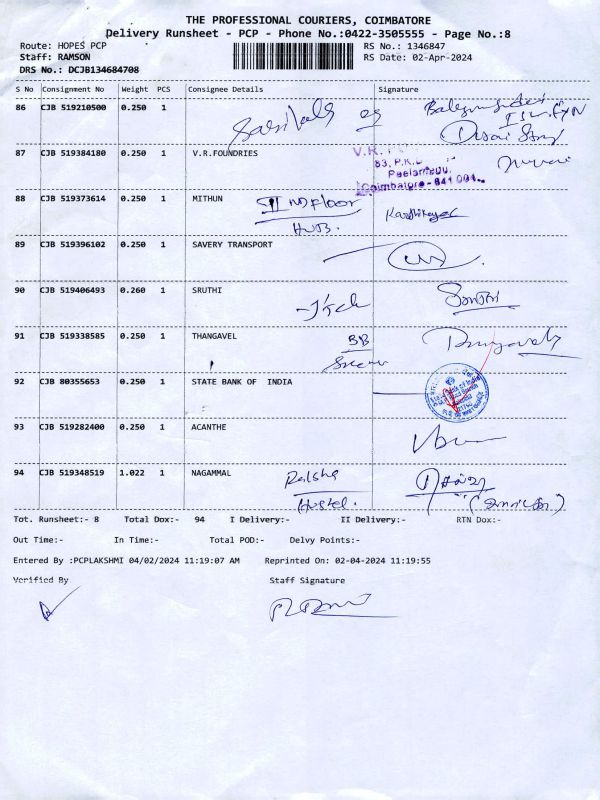 THE PROFESSIONAL COURIERS, COIMBATORE
Delivery Runsheet - PCP - Phone No.:0422-3505555 - Page No.:8
Route: HOPES PCP RS No.: 1346847
Staff: RAMSON RS Date: 02-Apr-2024
DRS No.: DCJB134684708
S No Consignment No Weight PCS Consignee Details Signature
86 CJB 519210500 0.250 1
87 CJB 519384180 0.250 1 V.R.FOUNDRIES V.R.
83, P.K.D
Peelamedu,
Coimbatore - 641 004.
88 CJB 519373614 0.250 1 MITHUN II ND Floor Karthikeyan
HUB.
89 CJB 519396102 0.250 1 SAVERY TRANSPORT
90 CJB 519406493 0.260 1 SRUTHI
91 CJB 519338585 0.250 1 THANGAVEL BB
92 CJB 80355653 0.250 1 STATE BANK OF INDIA
93 CJB 519282400 0.250 1 ACANTHE
94 CJB 519348519 1.022 1 NAGAMMAL
Hostel.
Tot. Runsheet:- 8 Total Dox:- 94 I Delivery:- II Delivery:- RTN Dox:-
Out Time:- In Time:- Total POD:- Delvy Points:-
Entered By :PCPLAKSHMI 04/02/2024 11:19:07 AM Reprinted On: 02-04-2024 11:19:55
Verified By Staff Signature